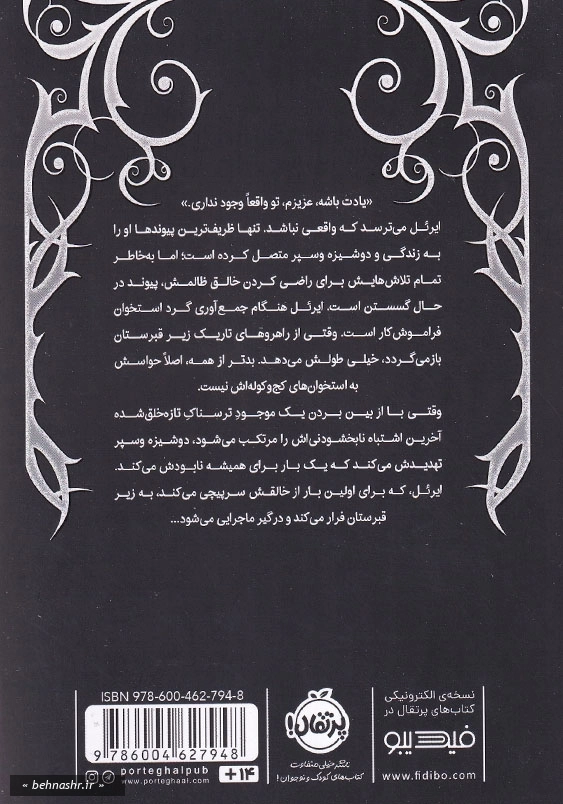 «یادت باشه، عزیزم، تو واقعاً وجود نداری.»
ایرئل می‌ترسد که واقعی نباشد. تنها ظریف‌ترین پیوندها او را
به زندگی و دوشیزه وسپر متصل کرده است؛ اما به‌خاطر
تمام تلاش‌هایش برای راضی کردن خالق ظالمش، پیوند در
حال گسستن است. ایرئل هنگام جمع‌آوری گرد استخوان
فراموش‌کار است. وقتی از راهروهای تاریک زیر قبرستان
بازمی‌گردد، خیلی طولش می‌دهد. بدتر از همه، اصلاً حواسش
به استخوان‌های کج‌وکوله‌اش نیست.
وقتی با از بین بردن یک موجودِ ترسناکِ تازه‌خلق‌شده
آخرین اشتباه نابخشودنی‌اش را مرتکب می‌شود، دوشیزه وسپر
تهدیدش می‌کند که یک بار برای همیشه نابودش می‌کند.
ایرئل، که برای اولین بار از خالقش سرپیچی می‌کند، به زیر
قبرستان فرار می‌کند و درگیر ماجرایی می‌شود...
نسخه‌ی الکترونیکی
کتاب‌های پرتقال در
فیدیبو
www.fidibo.com
پرتقال!
کتاب‌های کودک و نوجوان!
ISBN 978-600-462-794-8
9 786004 627948
porteghalpub
porteghaal.com
+۱۴
« behnashr.ir »